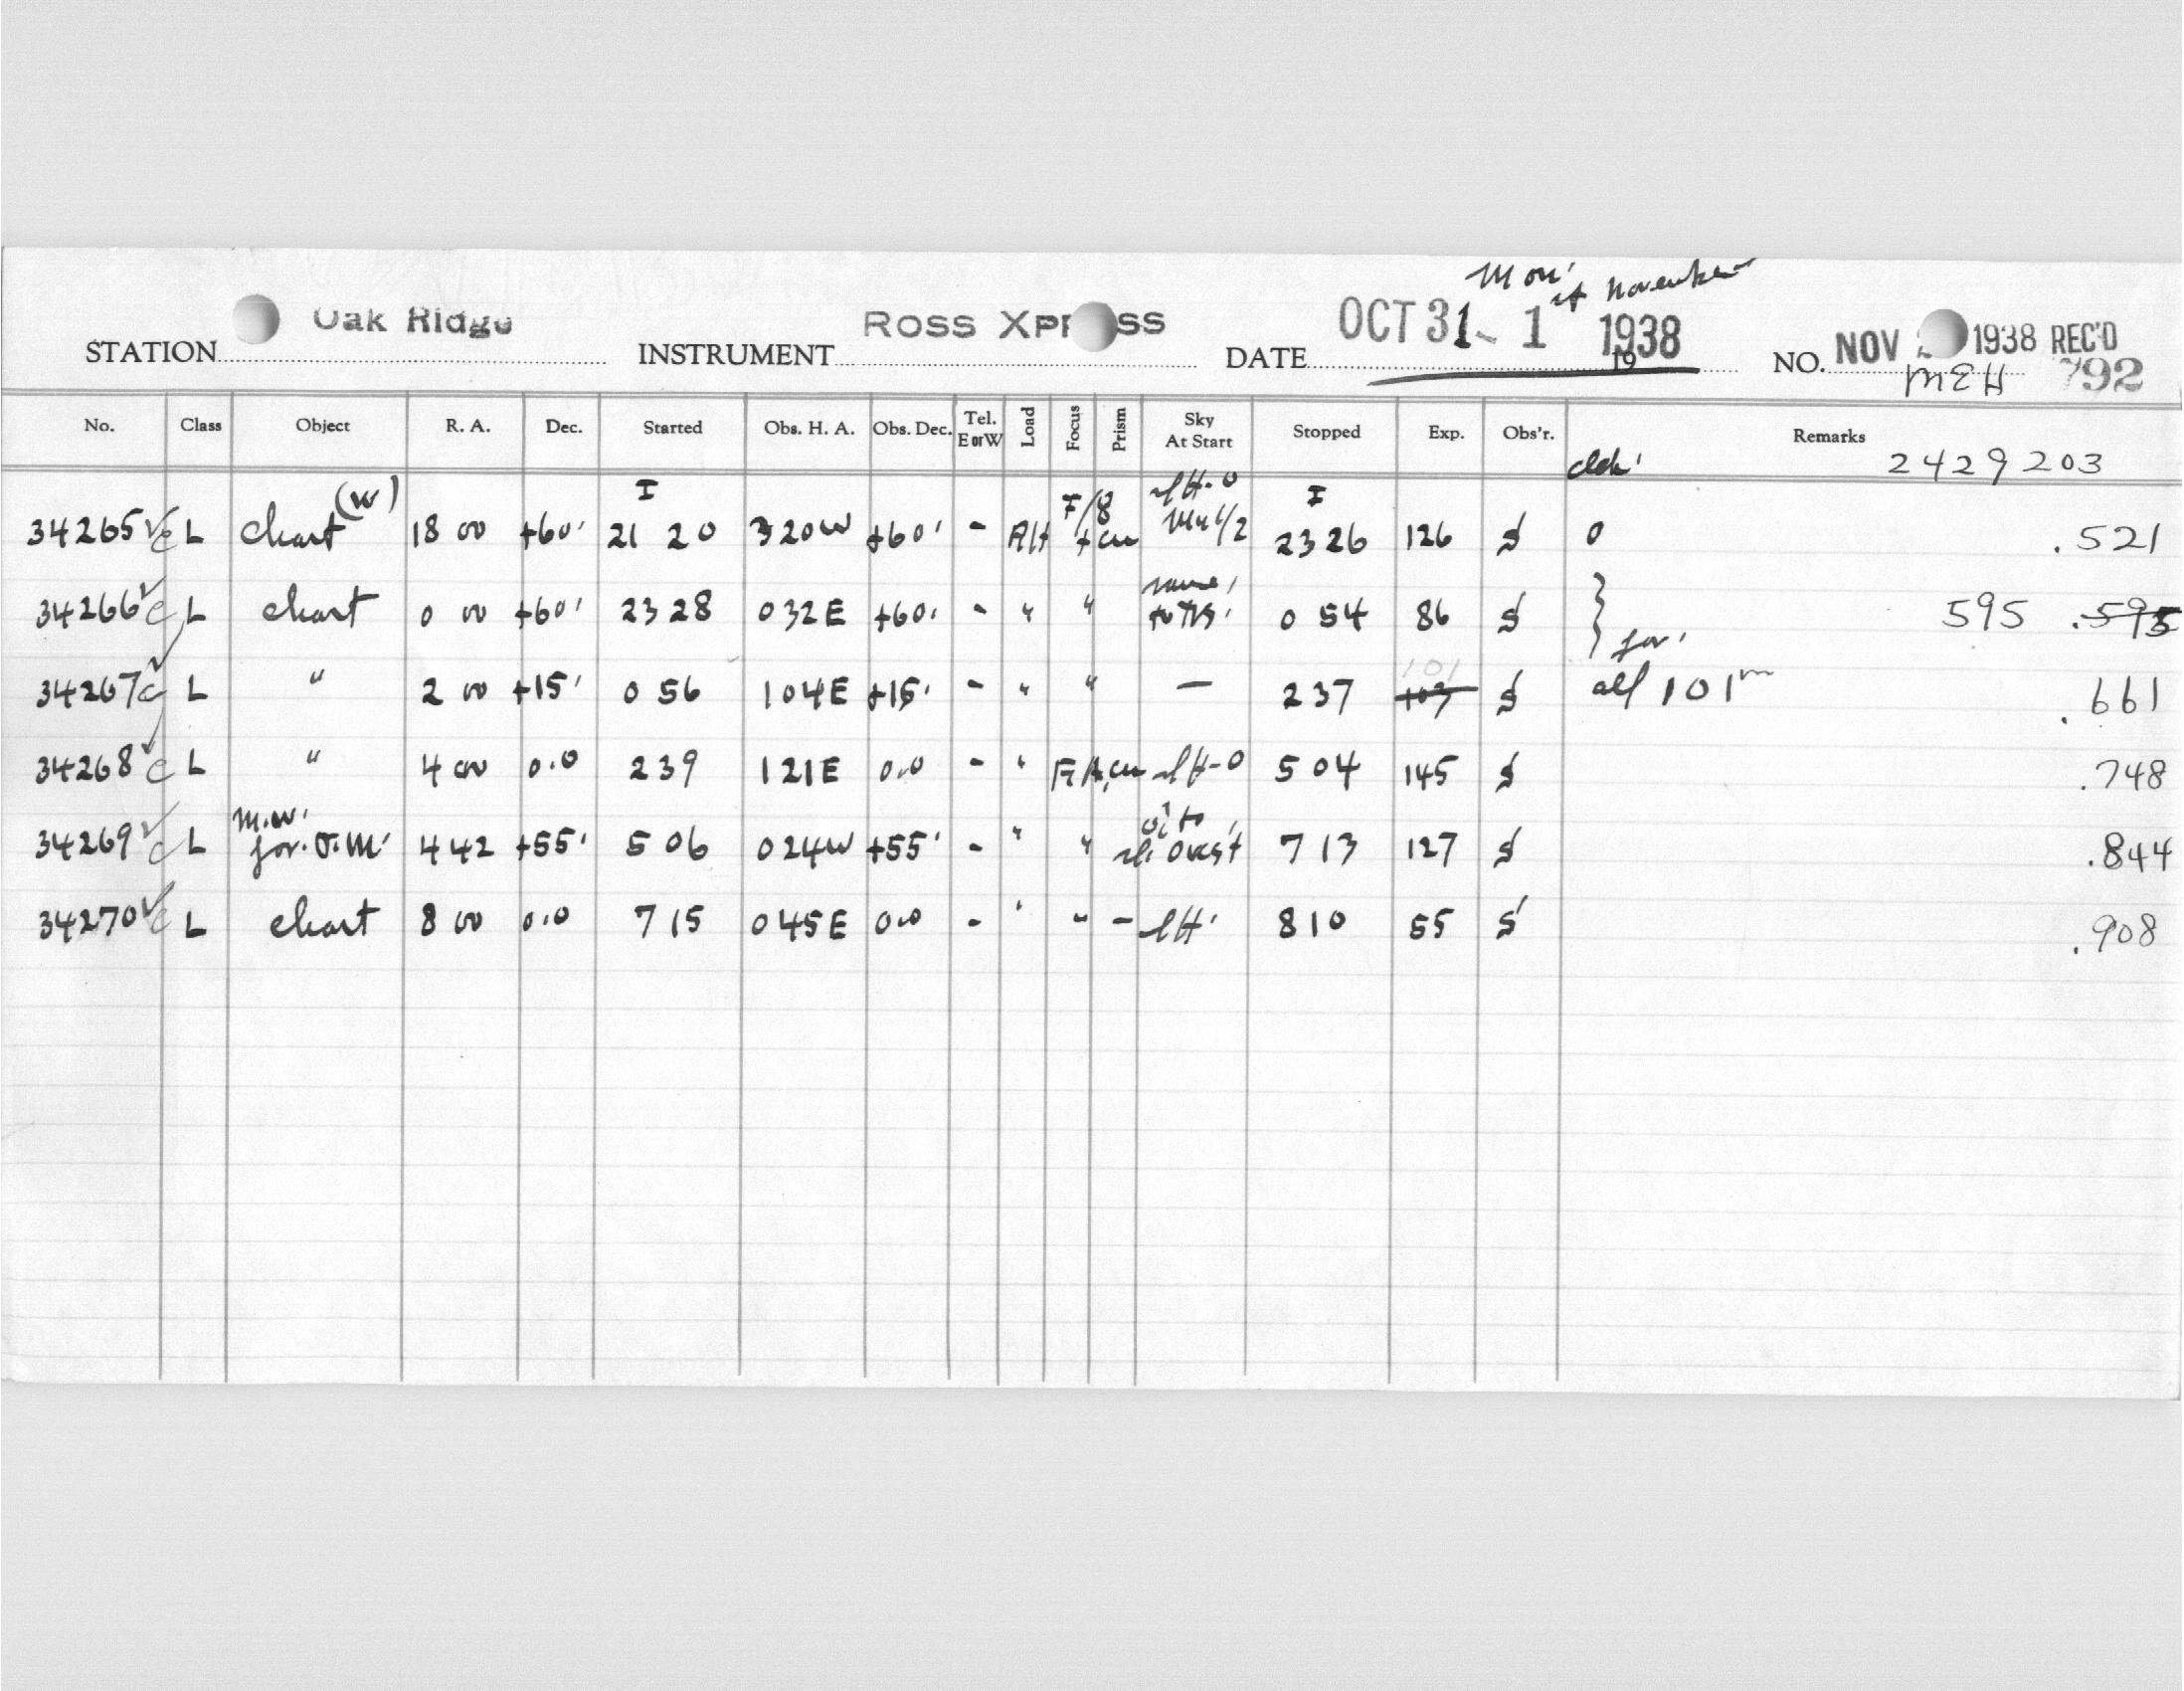 Mon. 1st November
STATION Oak Ridge INSTRUMENT ROSS XPRESS DATE OCT 31 - 1 1938 19 NO. NOV 1938 REC'D
MEH 792
No. Class Object R. A. Dec. Started Obs. H. A. Obs. Dec. Tel. E or W Load Focus Prism Sky At Start Stopped Exp. Obs'r. Remarks
2429203
34265 L chart (W) 18 00 +60° I 21 20 320W +60° - F/8 I 2326 126 S 0 .521
34266 L chart 0 00 +60° 23 28 032E +60° - " " 0 54 86 S } 595 .595
34267 L " 2 00 +15° 0 56 104E +15° - " " — 2 37 103 101 S all 101m .661
34268 L " 4 00 0.0 2 39 121E 0.0 - " 5 04 145 S .748
34269 L m.w. for J.M. 4 42 +55° 5 06 024W +55° - " " to ovcst 7 13 127 S .844
34270 L chart 8 00 0.0 7 15 045E 0.0 - " " - 8 10 55 S .908